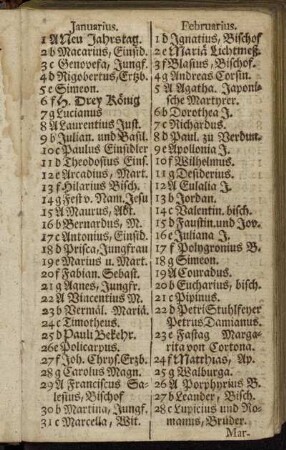 Januarius.
1 A Neu Jahrstag.
2 b Macarius, Einsid.
3 c Genovefa, Jungf.
4 d Rigobertus, Ertzb.
5 e Simeon.
6 f H. Drey König
7 g Lucianus
8 A Laurentius Just.
9 b Julian. und Basil.
10 c Paulus Einsidler
11 d Theodosius Eins.
12 e Arcadius, Mart.
13 f Hilarius Bisch.
14 g Fest v. Nam. Jesu
15 A Maurus, Abt.
16 b Bernardus, M.
17 c Antonius, Einsid.
18 d Prisca, Jungfrau
19 e Marius u. Mart.
20 f Fabian. Sebast.
21 g Agnes, Jungfr.
22 A Vincentius M.
23 b Vermäl. Mariä.
24 c Timotheus.
25 d Pauli Bekehr.
26 e Policarpus.
27 f Joh. Chrys. Erzb.
28 g Carolus Magn.
29 A Franciscus Sa-
lesius, Bischof
30 b Martina, Jungf.
31 c Marcella, Wit.
Februarius.
1 d Ignatius, Bischof
2 e Mariä Lichtmeß.
3 f Blasius, Bischof.
4 g Andreas Corsin.
5 A Agatha. Japoni-
sche Martyrer.
6 b Dorothea J.
7 c Richardus.
8 d Paul. zu Verdun.
9 e Apollonia J.
10 f Wilhelmus.
11 g Desiderius.
12 A Eulalia J.
13 b Jordan.
14 c Valentin. bisch.
15 d Faustin. und Jov.
16 e Juliana J.
17 f Polygronius B.
18 g Simeon.
19 A Conradus.
20 b Eucharius, bisch.
21 c Pipinus.
22 d Petri Stuhlfeyer
Petrus Damianus.
23 e Fasttag Marga-
rita von Cortona.
24 f Matthias, Ap.
25 g Walburga.
26 A Porphyrius B.
27 b Leander, Bisch.
28 c Lupicius und Ro-
manus, Brüder.
Mar-